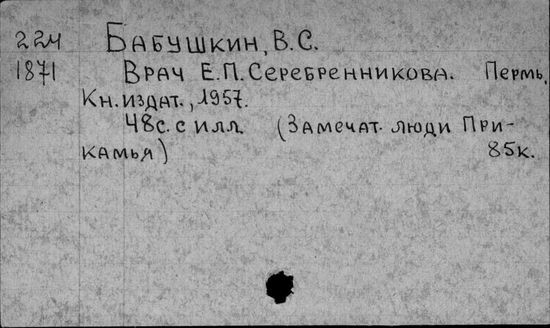 224 Бабушкин, В.С.
1871 Врач Е.П. Серебренникова. Пермь,
Кн. издат., 1957.
48с. с илл. (Замечат. люди При-
камья) 85к.